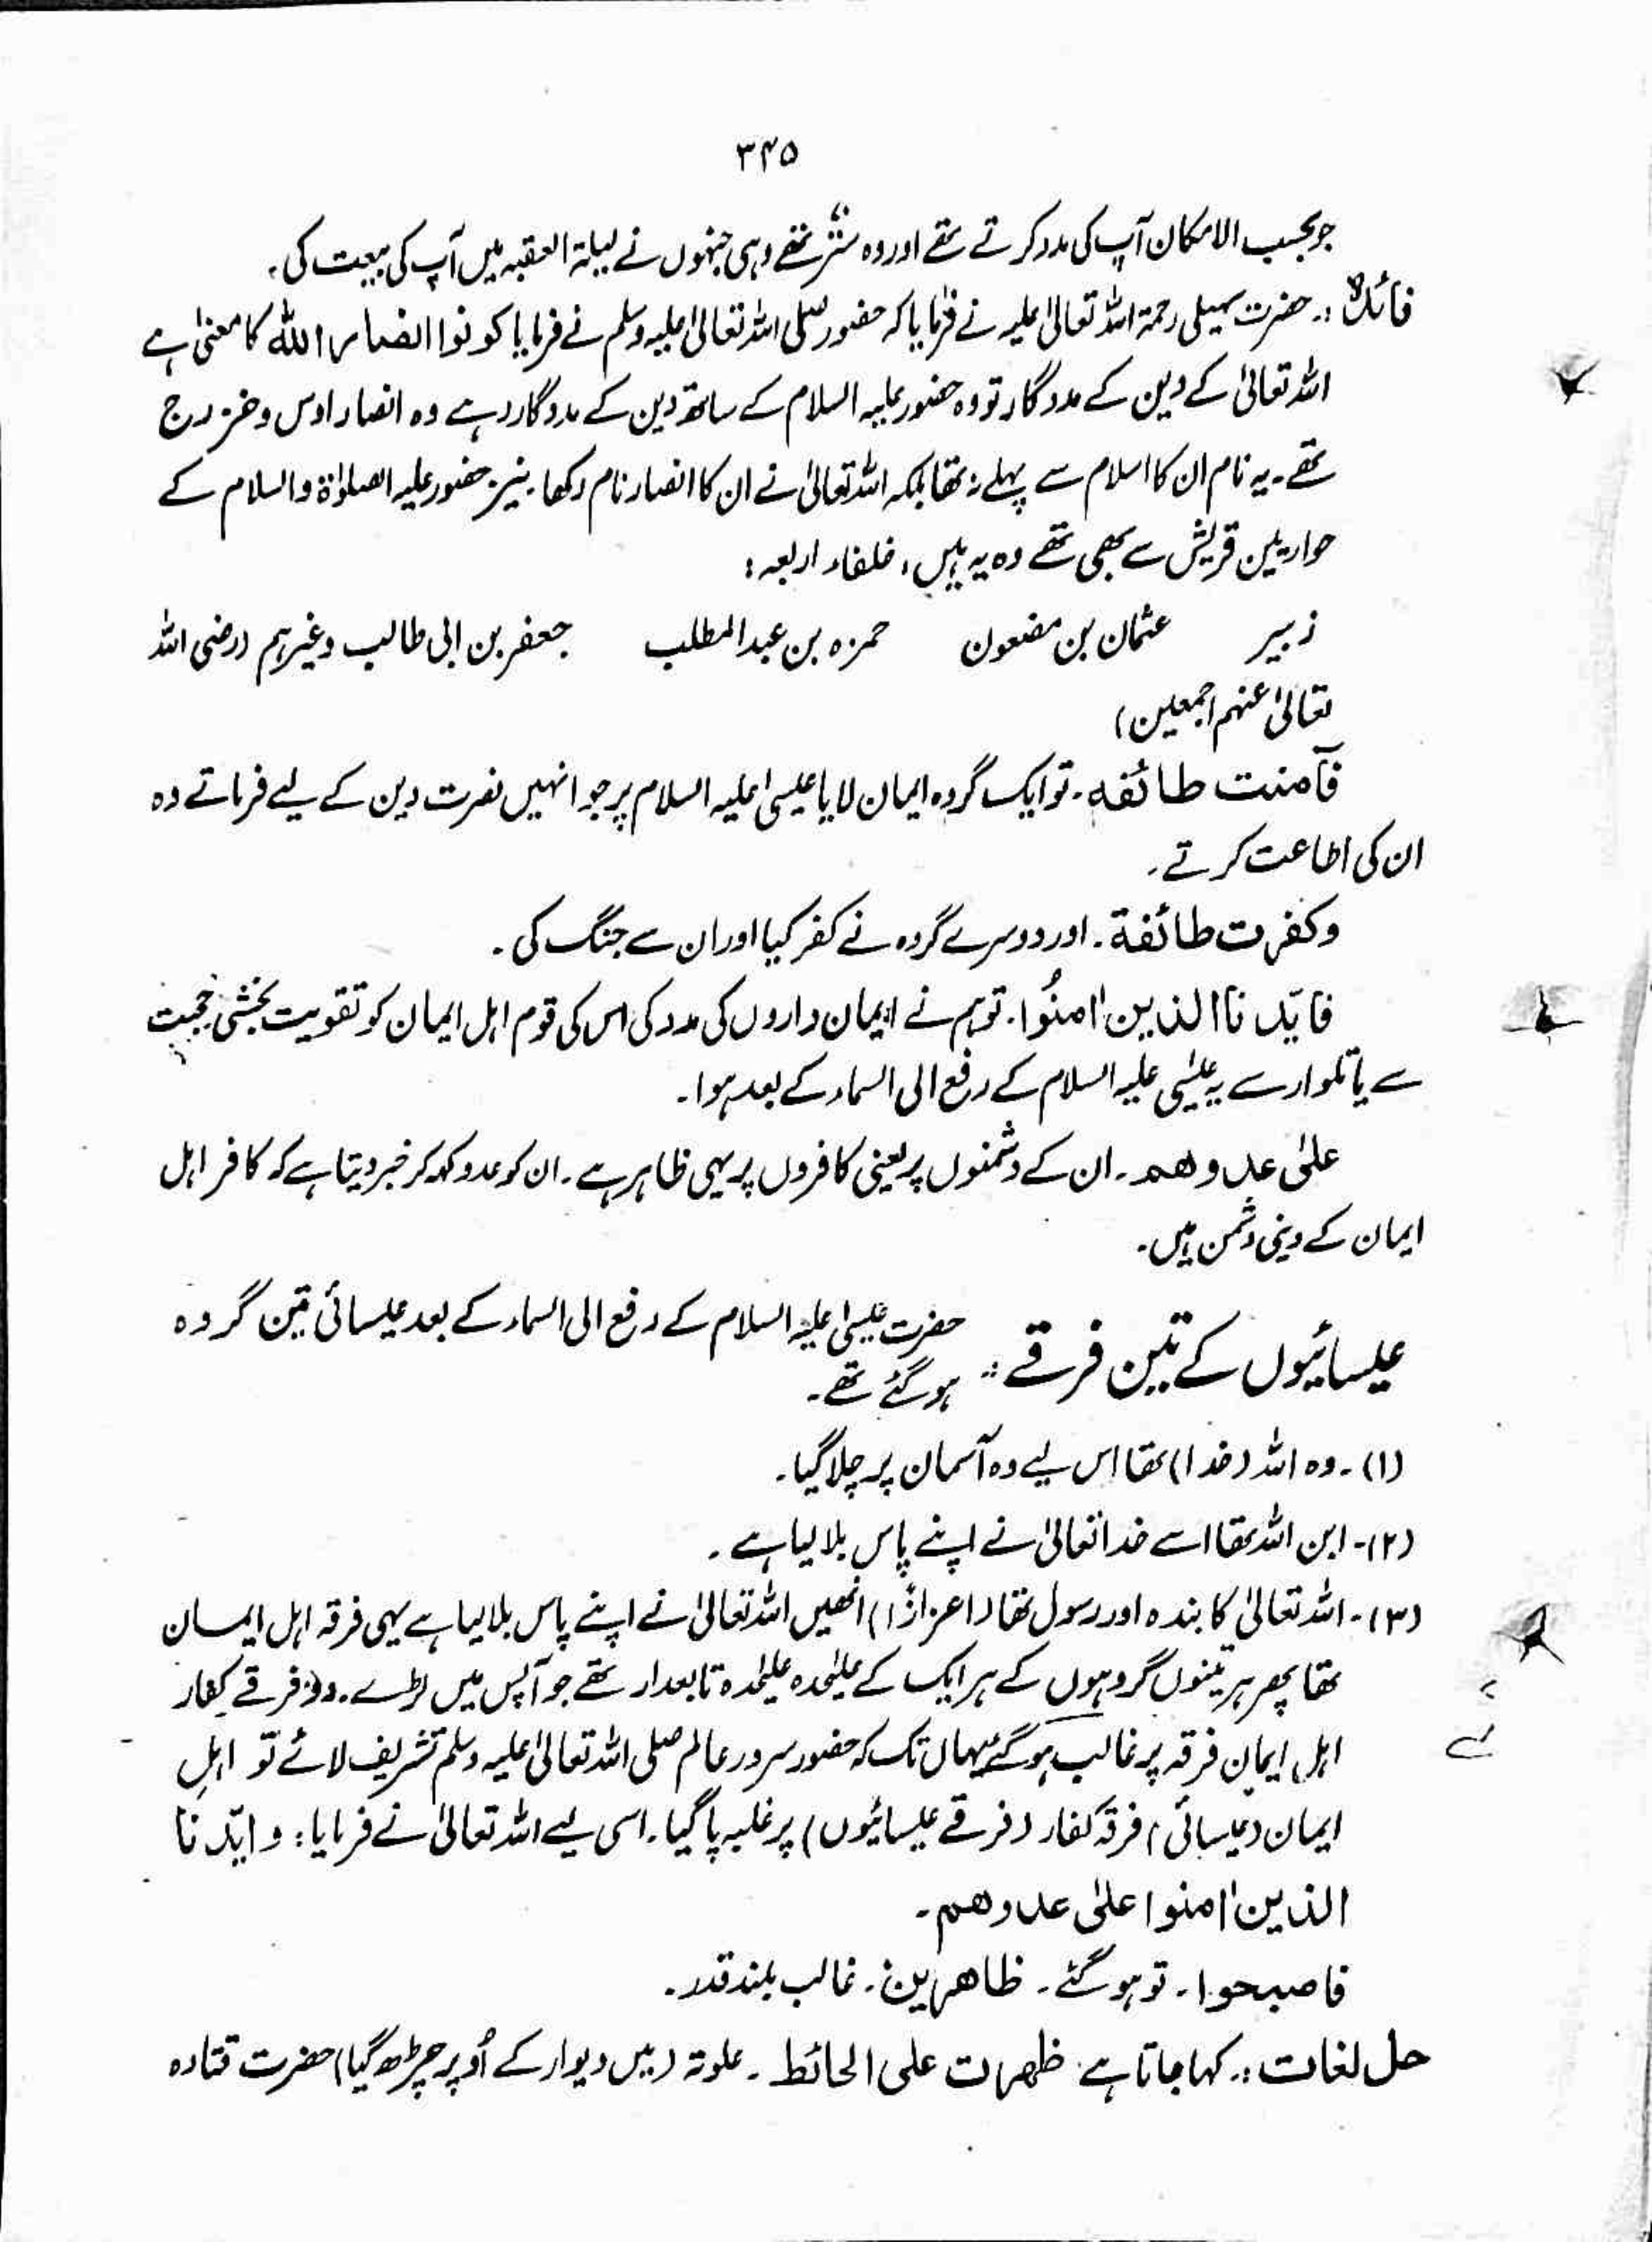 ۳۴۵
جو بحسب الامکان آپ کی مدد کرتے تھے اور وہ ستر تھے وہی جنہوں نے لیلۃ العقبہ میں آپ کی بیعت کی۔
فائدہ :۔ حضرت سہیلی رحمۃ اللہ تعالیٰ علیہ نے فرمایا کہ حضور صلی اللہ تعالیٰ علیہ وسلم نے فرمایا کونوا انصار اللہ کا معنیٰ ہے
اللہ تعالیٰ کے دین کے مددگار تو وہ حضور علیہ السلام کے ساتھ دین کے مددگار رہے وہ انصار اوس و خزرج
تھے۔ یہ نام ان کا اسلام سے پہلے نہ تھا بلکہ اللہ تعالیٰ نے ان کا انصار نام رکھا۔ نیز حضور علیہ الصلوٰۃ والسلام کے
حواریین قریش سے بھی تھے وہ یہ ہیں، خلفاء اربعہ :
زبیر عثمان بن مضعون حمزہ بن عبدالمطلب جعفر بن ابی طالب وغیرہم (رضی اللہ
تعالیٰ عنہم اجمعین)
فآمنت طائفہ۔ تو ایک گروہ ایمان لایا عیسیٰ علیہ السلام پر جو انہیں نصرت دین کے لیے فرماتے وہ
ان کی اطاعت کرتے۔
وکفرت طائفۃ۔ اور دوسرے گروہ نے کفر کیا اور ان سے جنگ کی۔
فایّدنا الذین اٰمنُوا۔ تو ہم نے ایمان داروں کی مدد کی اس کی قوم اہل ایمان کو تقویت بخشی حجت
سے یا تلوار سے یہ عیسٰی علیہ السلام کے رفع الی السماء کے بعد ہوا۔
علیٰ عدوھم۔ ان کے دشمنوں پر یعنی کافروں پر یہی ظاہر ہے۔ ان کو عدو کہہ کر خبر دیتا ہے کہ کافر اہل
ایمان کے دینی دشمن ہیں۔
عیسائیوں کے تین فرقے :۔ حضرت عیسیٰ علیہ السلام کے رفع الی السماء کے بعد عیسائی تین گروہ
ہو گئے تھے۔
(۱)۔ وہ اللہ (خدا) تھا اس لیے وہ آسمان پر چلا گیا۔
(۲)۔ ابن اللہ تھا اسے خدا تعالیٰ نے اپنے پاس بلا لیا ہے۔
(۳)۔ اللہ تعالیٰ کا بندہ اور رسول تھا (اعزازًا) انھیں اللہ تعالیٰ نے اپنے پاس بلا لیا ہے یہی فرقہ اہل ایمان
تھا پھر ہر تینوں گروہوں کے ہر ایک کے علیٰحدہ علیٰحدہ تابعدار تھے جو آپس میں لڑے۔ دو فرقے کفار
اہل ایمان فرقہ پر غالب ہو گئے یہاں تک کہ حضور سرور عالم صلی اللہ تعالیٰ علیہ وسلم تشریف لائے تو اہلِ
ایمان (عیسائی) فرقۂ کفار (فرقے عیسائیوں) پر غلبہ پا گیا۔ اسی لیے اللہ تعالیٰ نے فرمایا : و ایّدنا
الذین اٰمنوا علیٰ عدوھم۔
فاصبحوا۔ تو ہو گئے۔ ظاھرین۔ غالب بلند قدر۔
حل لغات :۔ کہا جاتا ہے ظھرت علی الحائط۔ علوتہ (میں دیوار کے اُوپر چڑھ گیا) حضرت قتادہ